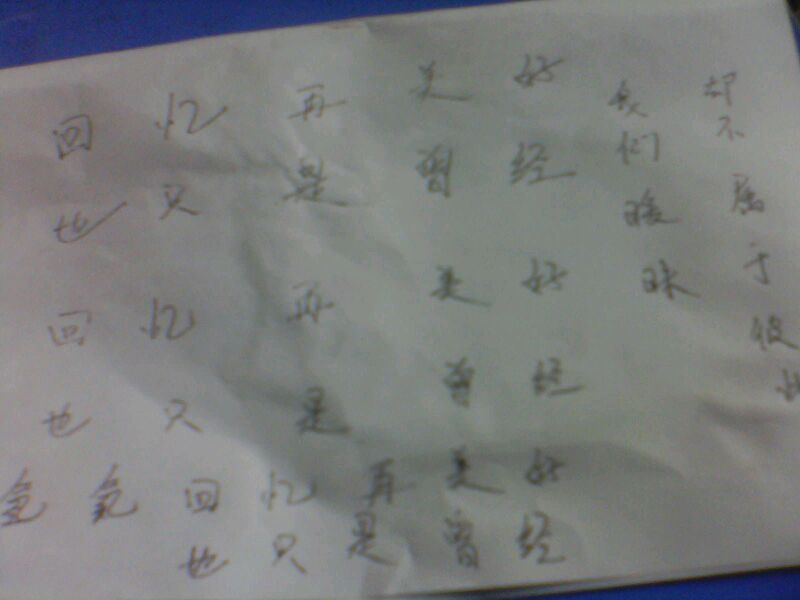 回忆再美好
也只是曾经
回忆再美好
也只是曾经
回忆再美好
也只是曾经
我们暧昧
却不属于彼此